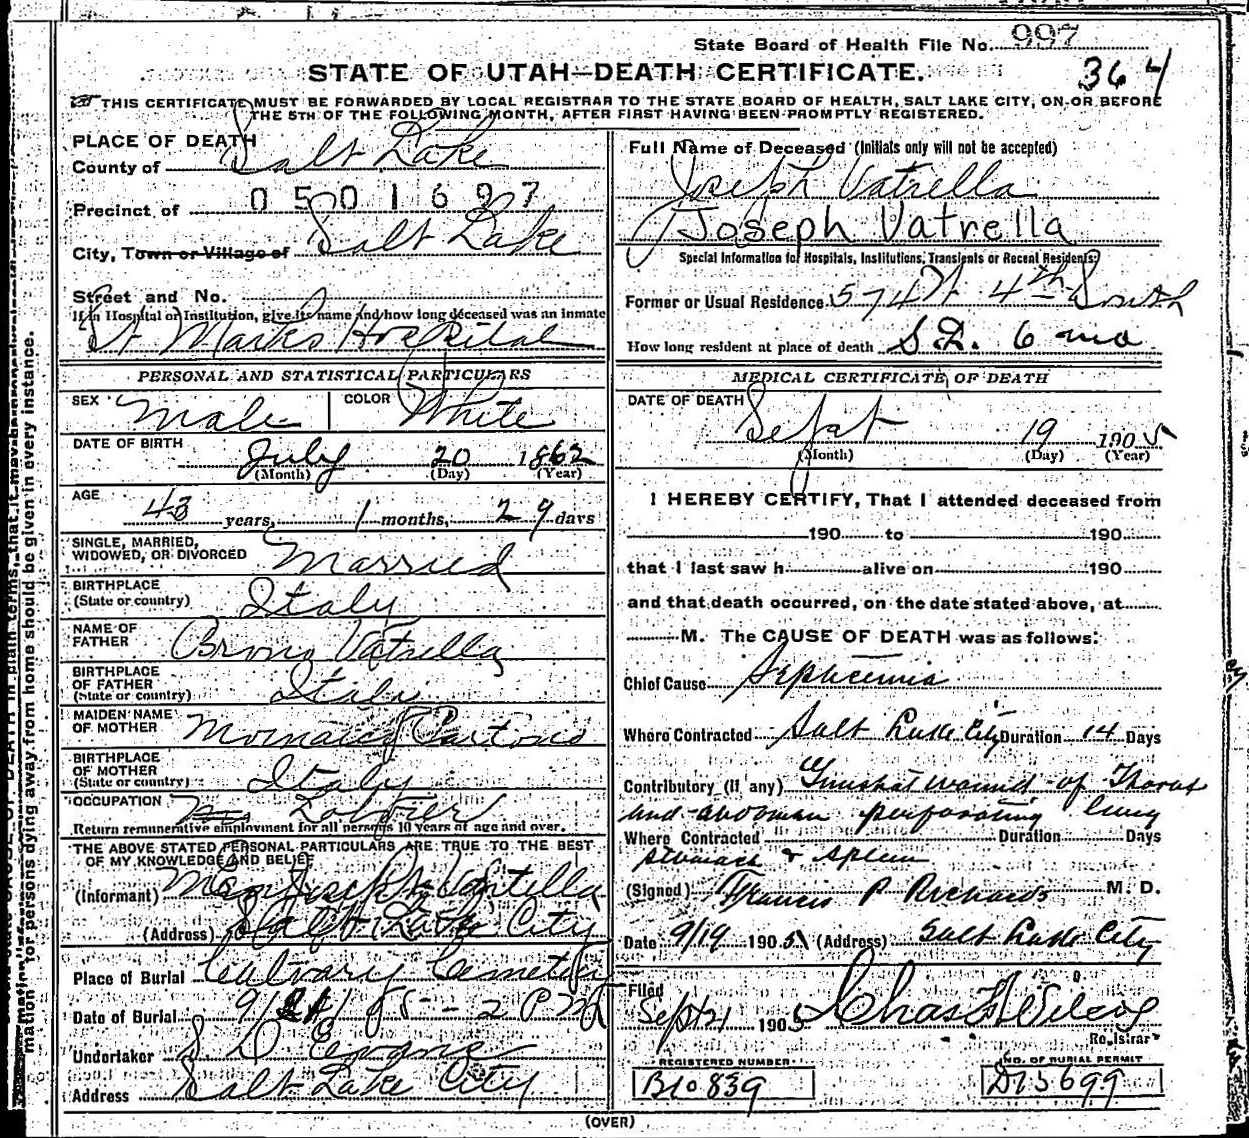 State Board of Health File No. 997
364
STATE OF UTAH—DEATH CERTIFICATE.
THIS CERTIFICATE MUST BE FORWARDED BY LOCAL REGISTRAR TO THE STATE BOARD OF HEALTH, SALT LAKE CITY, ON OR BEFORE
THE 5TH OF THE FOLLOWING MONTH, AFTER FIRST HAVING BEEN PROMPTLY REGISTERED.
PLACE OF DEATH
County of Salt Lake
0501697
Precinct of
City, Town or Village of Salt Lake
Street and No.
If in Hospital or Institution, give its name and how long deceased was an inmate
St Marks Hospital
PERSONAL AND STATISTICAL PARTICULARS
SEX Male COLOR White
DATE OF BIRTH July 20 1862
(Month) (Day) (Year)
AGE 43 years, 1 months, 29 days
SINGLE, MARRIED,
WIDOWED, OR DIVORCED Married
BIRTHPLACE
(State or country) Italy
NAME OF
FATHER Vatrella
BIRTHPLACE
OF FATHER
(State or country) Itali
MAIDEN NAME
OF MOTHER
BIRTHPLACE
OF MOTHER
(State or country) Italy
OCCUPATION
Return remunerative employment for all persons 10 years of age and over.
THE ABOVE STATED PERSONAL PARTICULARS ARE TRUE TO THE BEST
OF MY KNOWLEDGE AND BELIEF
(Informant)
(Address) Salt Lake City
Place of Burial Calvary Cemetery
Date of Burial
Undertaker S. D. Evans
Address Salt Lake City
Full Name of Deceased (Initials only will not be accepted)
Joseph Vatrella
Joseph Vatrella
Special Information for Hospitals, Institutions, Transients or Recent Residents:
Former or Usual Residence 574 W 4th South
How long resident at place of death S.L. 6 mo
MEDICAL CERTIFICATE OF DEATH
DATE OF DEATH
Sept 19 1905
(Month) (Day) (Year)
I HEREBY CERTIFY, That I attended deceased from
190 to 190
that I last saw h alive on 190
and that death occurred, on the date stated above, at
M. The CAUSE OF DEATH was as follows:
Chief Cause Septicemia
Where Contracted Salt Lake City Duration 14 Days
Contributory (if any) Gunshot wound of Thorax
and abdomen perforating lung
Where Contracted Duration Days
stomach & spleen
(Signed) Francis P Richards M. D.
Date 9/19 1905 (Address) Salt Lake City
Filed
Sept 21 1905 Chas Wilcox
Registrar
REGISTERED NUMBER
B10839
NO. OF BURIAL PERMIT
D15699
(OVER)
mation for persons dying away from home should be given in every instance.